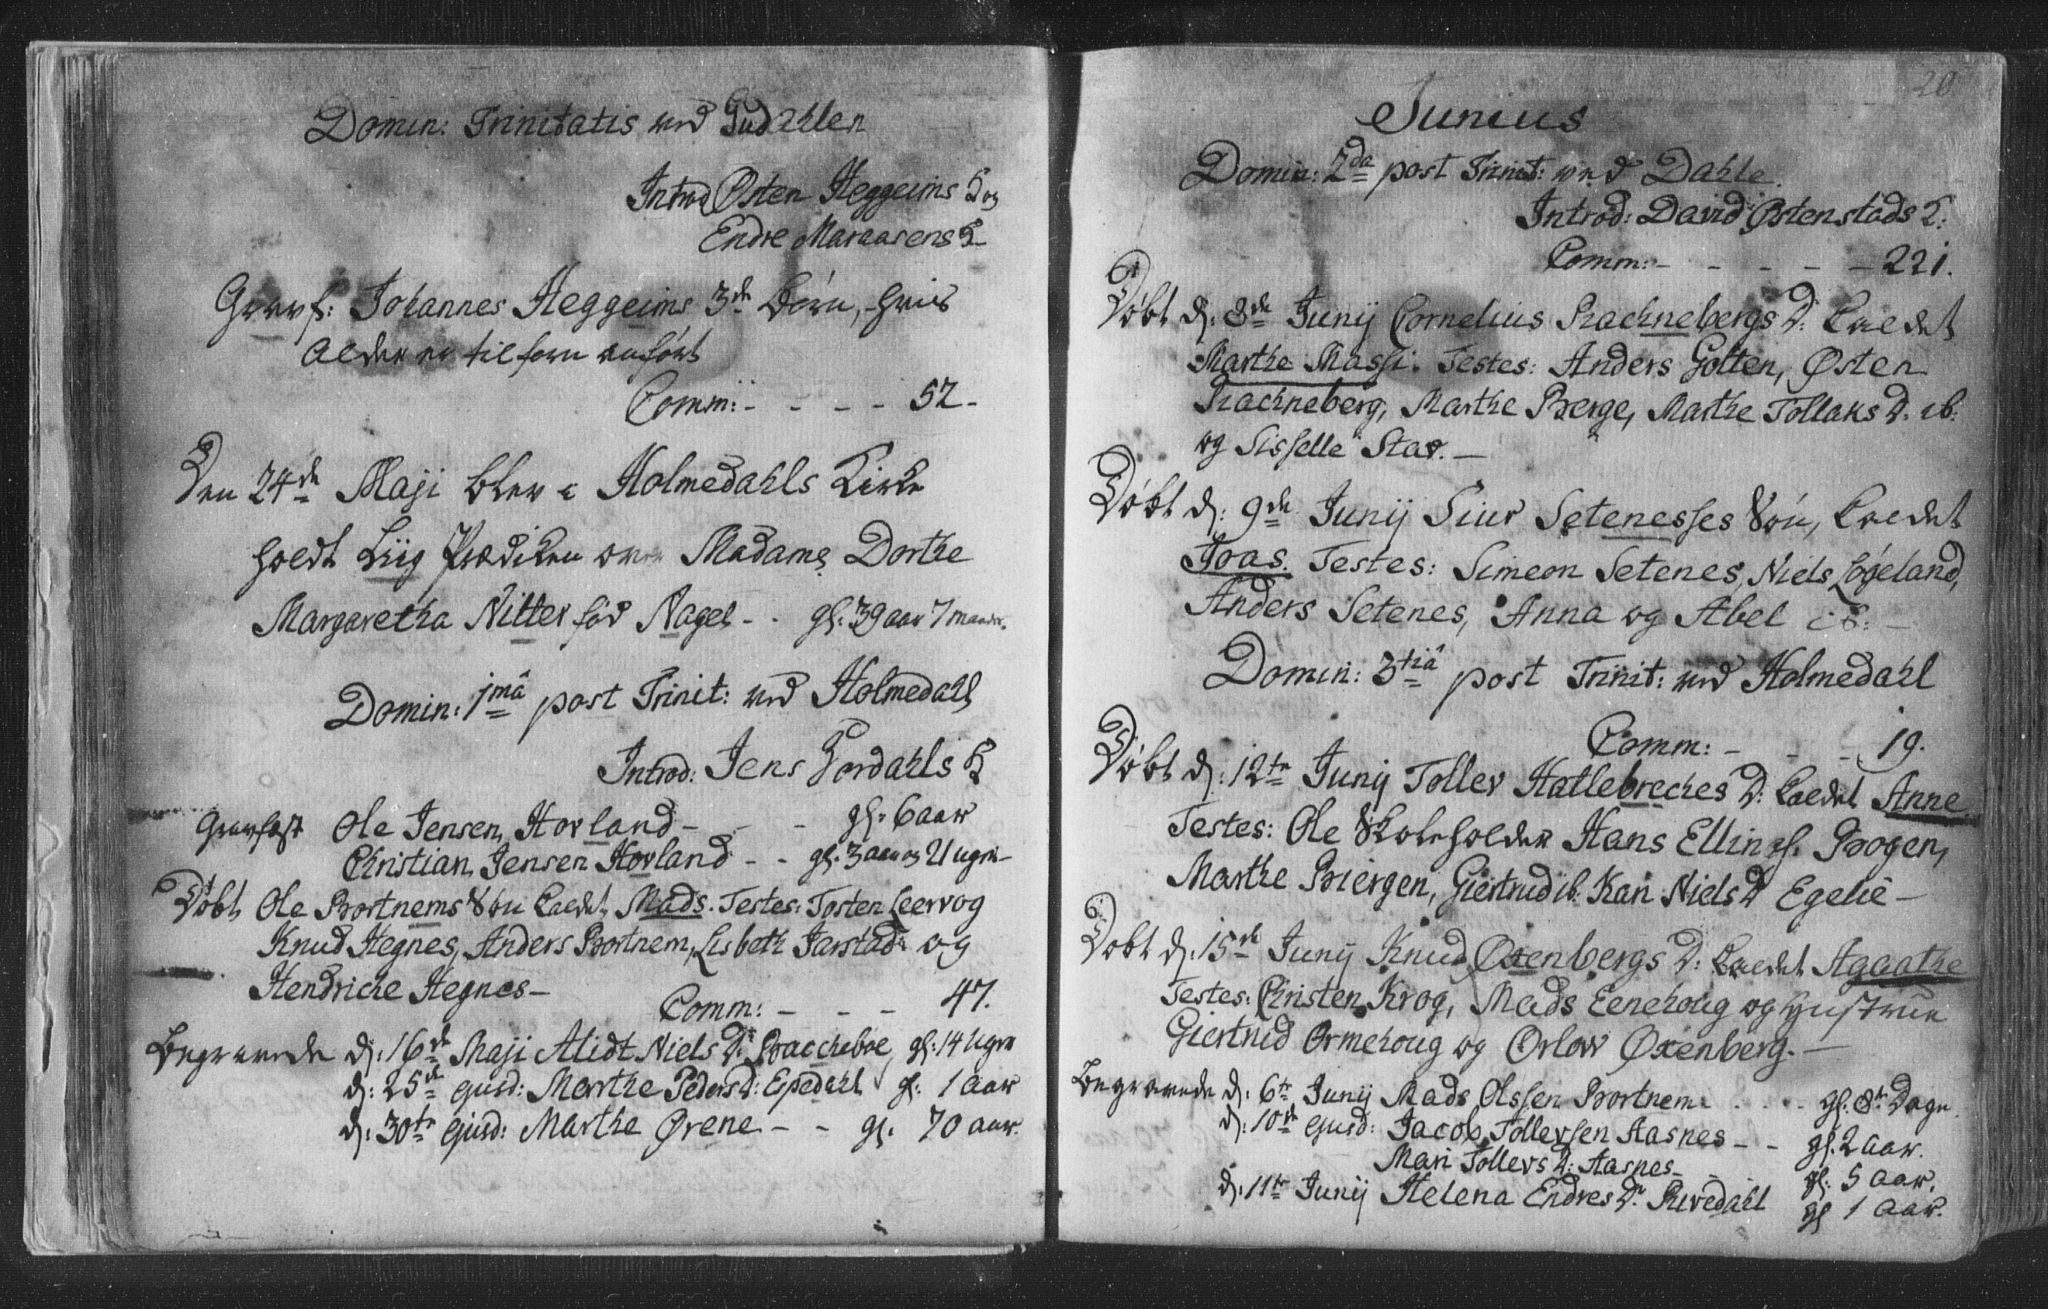 Domin: Trinitatis ved Gudahlen
Introd Østen Heggeims K og
Endre Maraasens K
Gravf: Johannes Heggeims 3de Børn, hvis
Alder er tilforn anført
Comm: - - - - 52 -
Den 24de Maji blev i Holmedahls Kirke
holdt Liig Prædiken over Madame Dorthe
Margaretha Nitter fød Nagel - - gl: 39 aar 7 maaner.
Domin: 1mâ post Trinit: ved Holmedahl
Introd: Jens Fordahls K
Gravfæst Ole Jensen Hovland - - - gl: 6 aar
Christian Jensen Hovland - - gl: 3 aar og 21 uger
Døbt Ole Bortnems Søn kaldet Mads. Testes: Tosten Leervog
Knud Hegnes, Anders Bortnem, Lisbeth Jarstad og
Hendriche Hegnes -
Comm: - - - 47.
Begravede d: 16de Maji Alidt Niels D: Bacchebøe, gl: 14 uger
d: 25de ejusd: Marthe Peders D: Epedahl gl: 1 aar
d: 30te ejusd: Marthe Ørene - - gl: 70 aar.
20
Junius
Domin: 2da post Trinit: ved Dahle.
Introd: David Østenstads K:
Comm: - - - - - 221.
Døbt d: 8de Junij Cornelius Rachnebergs D: kaldet
Marthe Massi. Testes: Anders Gotten, Østen
Rachneberg, Marthe Berge, Marthe Tollaks D. ib:
og Sisselle Stav. -
Døbt d: 9de Junij Siur Setenesses Søn, kaldet
Joas. Testes: Simeon Setenes, Niels Løgeland,
Anders Setenes, Anna og Abel ib: -
Domin: 3tiâ post Trinit: ved Holmedahl
Comm: - - - 19.
Døbt d: 12te Junij Tollev Hatlebreches D: kaldet Anne
Testes: Ole Skoleholder Hans Ellings. Bogen,
Marthe Biergen, Giertrud ib. Kari Niels D Egelie -
Døbt d: 15de Junij Knud Oxenbergs D: kaldet Agaathe
Testes: Christen Krog, Mads Eenehoug og Hustrue
Giertrud Ormehoug og Orlow Oxenberg. -
Begravede d: 6te Junij Mads Olssen Bortnem - - - - gl: 8te Dage.
d: 10de ejusd: Jacob Tollevsen Aasnes - - gl: 2 aar.
Mari Tollevs D: Aasnes - - gl: 5 aar.
d: 11te Junij Helena Endres D: Rivedahl gl 1 aar.